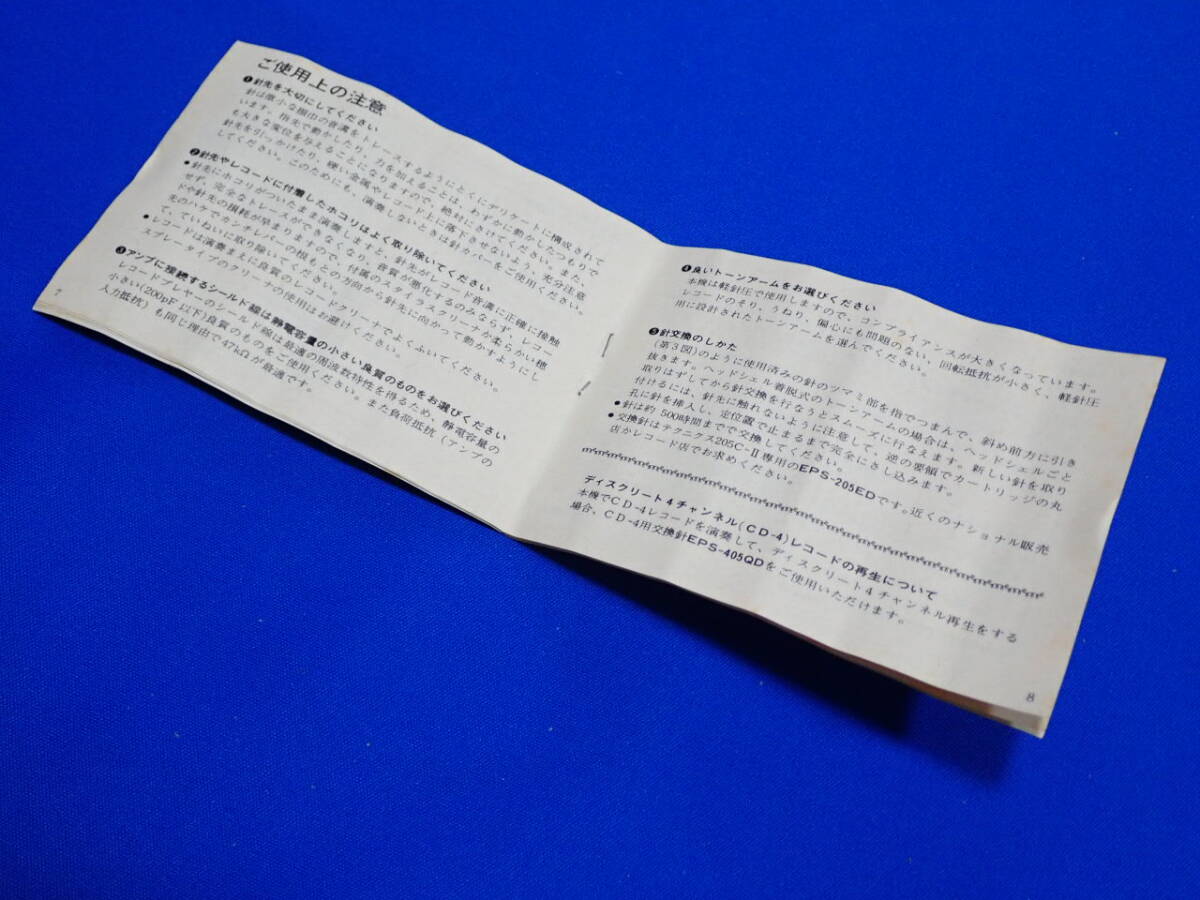 ご使用上の注意
❶針先を大切にしてください
針は微小な振巾の音溝をトレースするようにとくにデリケートに構成されて
います。指先で動かしたり、力を加えることは、わずかに動かしたつもりで
も大きな変位を与えることになりますので、絶対にさけてください。また、
針先を引っかけたり、硬い金属やレコード上に落下させないよう、充分注意
してください。このためにも、演奏しないときは針カバーをご使用ください。
❷針先やレコードに付着したホコリはよく取り除いてください
●針先にホコリがついたまま演奏しますと、針先がレコード音溝に正確に接触
せず、完全なトレースができなくなり、音質が悪化するのみならず、レコー
ドや針先の損耗が早まりますので、付属のスタイラスクリーナか柔らかい穂
先のハケでカンチレバーの根もとの方向から針先に向かって動かすようにし
て、ていねいに取り除いてください。
●レコードは演奏まえに良質のレコードクリーナでよくふいてください。
スプレータイプのクリーナの使用はお避けください。
❸アンプに接続するシールド線は静電容量の小さい良質のものをお選びください
レコードプレヤーのシールド線は最適の周波数特性を得るため、静電容量の
小さい(200pF以下)良質のものをご使用ください。また負荷抵抗(アンプの
入力抵抗)も同じ理由で47kΩが最適です。
7
❹良いトーンアームをお選びください
本機は軽針圧で使用しますので、コンプライアンスが大きくなっています。
レコードのそり、うねり、偏心にも問題のない、回転抵抗が小さく、軽針圧
用に設計されたトーンアームを選んでください。
❺針交換のしかた
(第3図)のように使用済みの針のツマミ部を指でつまんで、斜め前方に引き
抜きます。ヘッドシェル着脱式のトーンアームの場合は、ヘッドシェルごと
取りはずしてから針交換を行なうとスムーズに行なえます。新しい針を取り
付けるには、針先に触れないように注意して、逆の要領でカートリッジの丸
孔に針を挿入し、定位置で止まるまで完全にさし込みます。
●針は約500時間までで交換してください。
●交換針はテクニクス205C-Ⅱ専用のEPS-205EDです。近くのナショナル販売
店かレコード店でお求めください。
ディスクリート4チャンネル(CD-4)レコードの再生について
本機でCD-4レコードを演奏して、ディスクリート4チャンネル再生をする
場合、CD-4用交換針EPS-405QDをご使用いただけます。
8